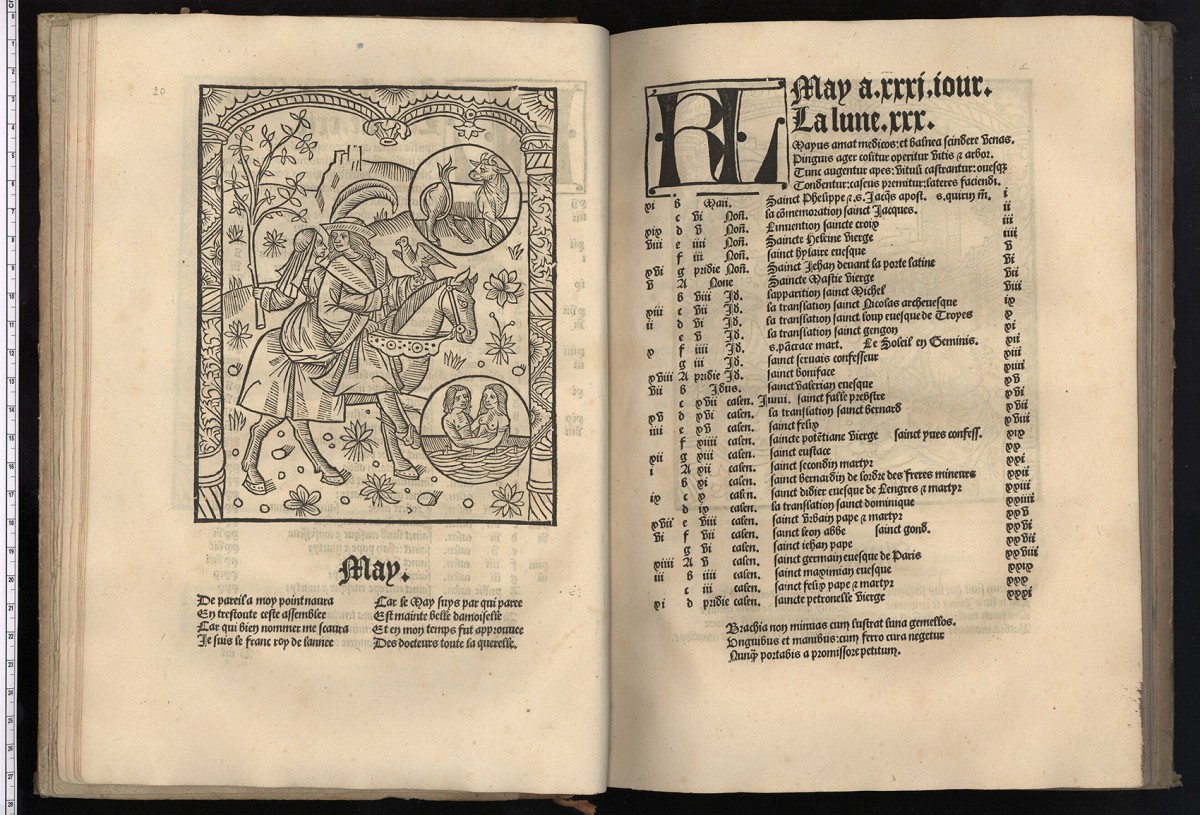 20
May.
De pareil a moy point naura
En trestoute ceste assemblee
Car qui bien nommer me scaura
Je suis le franc roy de lannee
Car le May suys par qui paree
Est mainte belle damoiselle
Et en mon temps fut approuuee
Des docteurs toute la querelle.
KL
May a.xxxj.iour.
La lune.xxx.
Mayus amat medicos: et balnea scindere venas.
Pinguis ager colitur operitur vitis ⁊ arbor.
Tunc augentur apes: vituli castrantur: ouesqꝫ
Tondentur: caseus premitur: lateres faciendi.
xi b Maii. Sainct Phelippe ⁊.s. Jacq̄s apost. s.quirin m̄. i
c vi Noñ. la cōmemoration sainct Jacques. ii
xix d v Noñ. Linuention saincte croix iii
viii e iiii Noñ. Saincte Heleine vierge iiii
f iii Noñ. sainct hylaire euesque v
xvi g pridie Noñ. Sainct Jehan deuant la porte latine vi
v A None Saincte Mastie vierge vii
b viii Jd. lapparition sainct Michel viii
xiii c vii Jd. la translation sainct Nicolas archeuesque ix
ii d vi Jd. la translation sainct loup euesque de Troyes x
e v Jd. la translation sainct gengon xi
x f iiii Jd. s.pācrace mart. Le Soleil en Geminis. xii
g iii Jd. sainct seruais confesseur xiii
xviii A pridie Jd. sainct boniface xiiii
vii b Jdus. sainct valerian euesque xv
c xvii calen. Junii. sainct falle prebstre
xv d xvi calen. la translation sainct bernard xvii
iiii e xv calen. sainct felix xviii
f xiiii calen. saincte potētiane vierge sainct yues confess. xix
xii g xiii calen. sainct eustace
i A xii calen. sainct secondin martyr xxi
b xi calen. sainct bernardin de lordre des freres mineurs xxii
ix c x calen. sainct didier euesque de Lengres ⁊ martyr xxiii
d ix calen. la translation sainct dominique xxiiii
xvii e viii calen. sainct vrbain pape ⁊ martyr xxv
vi f vii calen. sainct leon abbe sainct gond. xxvi
g vi calen. sainct iehan pape xxvii
xiiii A v calen. sainct germain euesque de Paris xxviii
iii b iiii calen. sainct maximian euesque xxix
c iii calen. sainct felix pape ⁊ martyr xxx
xi d pridie calen. saincte petronelle vierge xxxi
Brachia non minuas cum lustrat luna gemellos.
Vnguibus et manibus: cum ferro cura negetur
Nunq̄ portabis a promissore petitum.